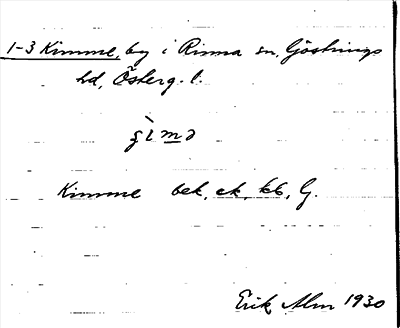 1-3 Kimme, by i Rinna sn, Göstrings
hd, Österg. l.
g̀imə
Kimme bek, ek, kb, G.
Erik Alm 1930